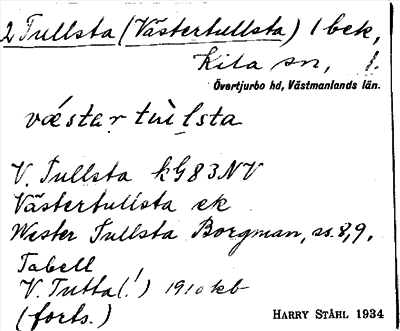 2 Tullsta (Västertullsta) 1 bek,
Kila sn, 1.
Övertjurbo hd, Västmanlands län.
væ̀star tuɩ̀lsta
V. Tullsta kG83NV
Västertullsta ek
Wester Tullsta Borgman, ss. 8, 9.
Tabell
V. Tutta (!) 1910 kb
(forts.)
HARRY STÅHL 1934